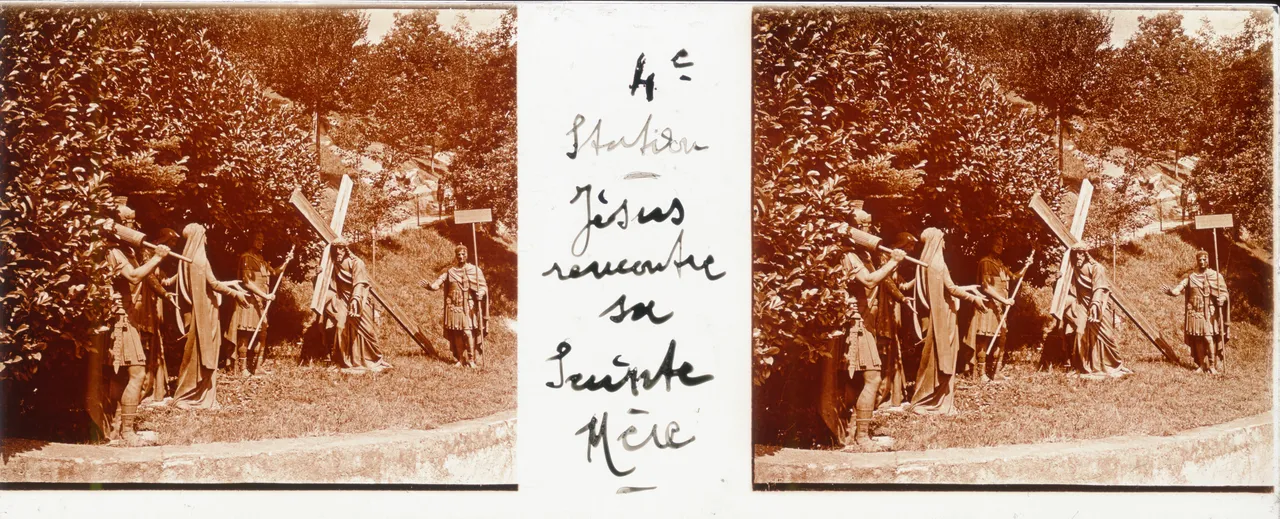 4e
Station
Jésus
rencontre
sa
Sainte
Mère